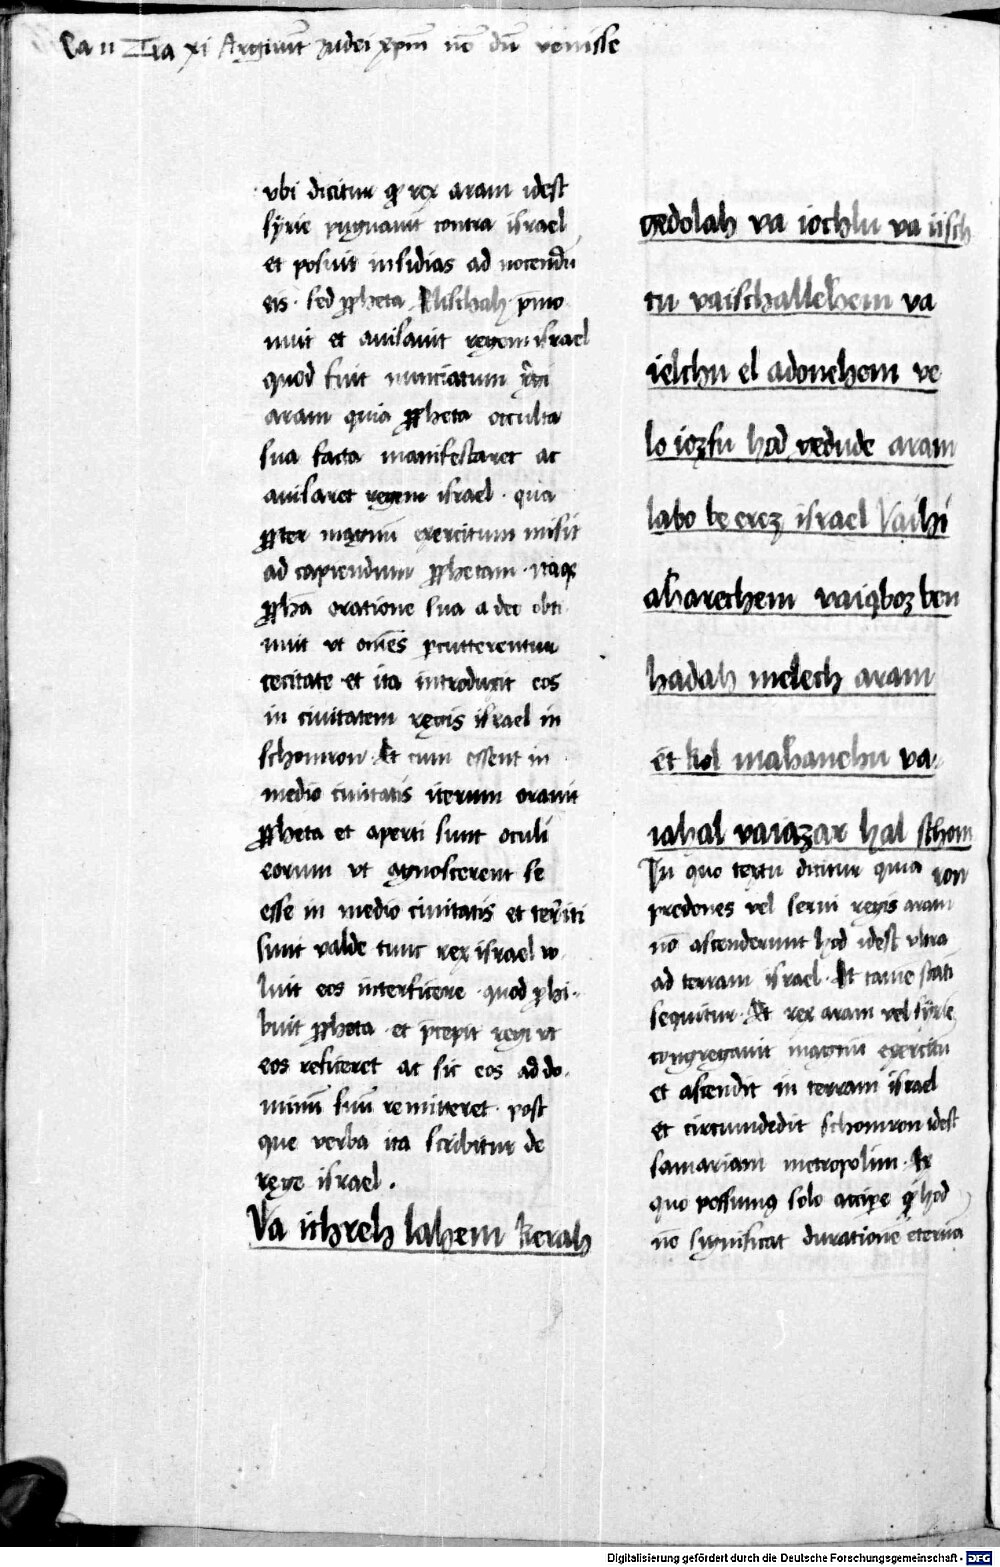 Ca 11 Tra xi Arguunt Judei xpm no du venisse
ubi dicitur q rex aram idest
syrie pugnavit contra israel
et posuit insidias ad nocendu
eis. sed ppheta Elischah pmo
nuit et avisavit regem israel
quod fuit nunciatum regi
aram quia ppheta occulta
sua facta manifestaret ac
avisaret regem israel. qua
ppter magnu exercitum misit
ad capiendum pphetam. itaq
ppha oratione sua a deo obti
nuit vt omes pcutterentur
cecitate et ita introduxit eos
in civitatem regis israel in
schomron. Et cum essent in
medio civitatis iterum oravit
ppheta et aperti sunt oculi
eorum vt agnoscerent se
esse in medio civitatis et teriti
sunt valde tunc rex israel vo
luit eos interficere. quod phi
buit ppheta. et pcepit regi vt
eos reficeret ac sic eos ad do
minu suu remitteret. post
que verba ita scribitur de
rege israel.
Va ichreh lahem kerah
gedolah va iochlu va iisch
tu vaischallehem va
ielchu el adonehem ve
lo iozfu hod gedude aram
labo be erez israel Vaihi
aharechem vaiqboz ben
hadah melech aram
et kol mahanehu va
iahal vaiazar hal schom
ron
In quo textu dicitur quia
predones vel servi regis aram
no ascenderunt hod idest ultra
ad terram israel. Et tame stati
sequitur. Et rex aram vel syrie
congregavit magnu exercitu
et ascendit in terram israel
et circumdedit schomron idest
samariam metropolim. Ex
quo possumus solo accipe q hod
no significat duratione eterna
Digitalisierung gefördert durch die Deutsche Forschungsgemeinschaft - DFG